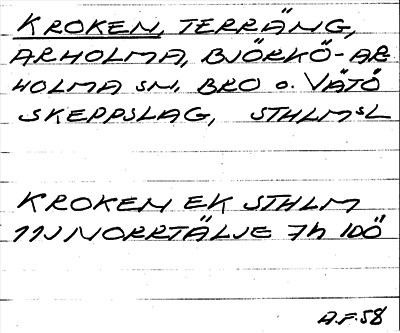 KROKEN, TERRÄNG,
ARHOLMA, BJÖRKÖ-AR
HOLMA SN, BRO o. VÄTÖ
SKEPPSLAG, STHLMSL
KROKEN EK STHLM
11J NORRTÄLJE 7h 10Ö
A.F.58